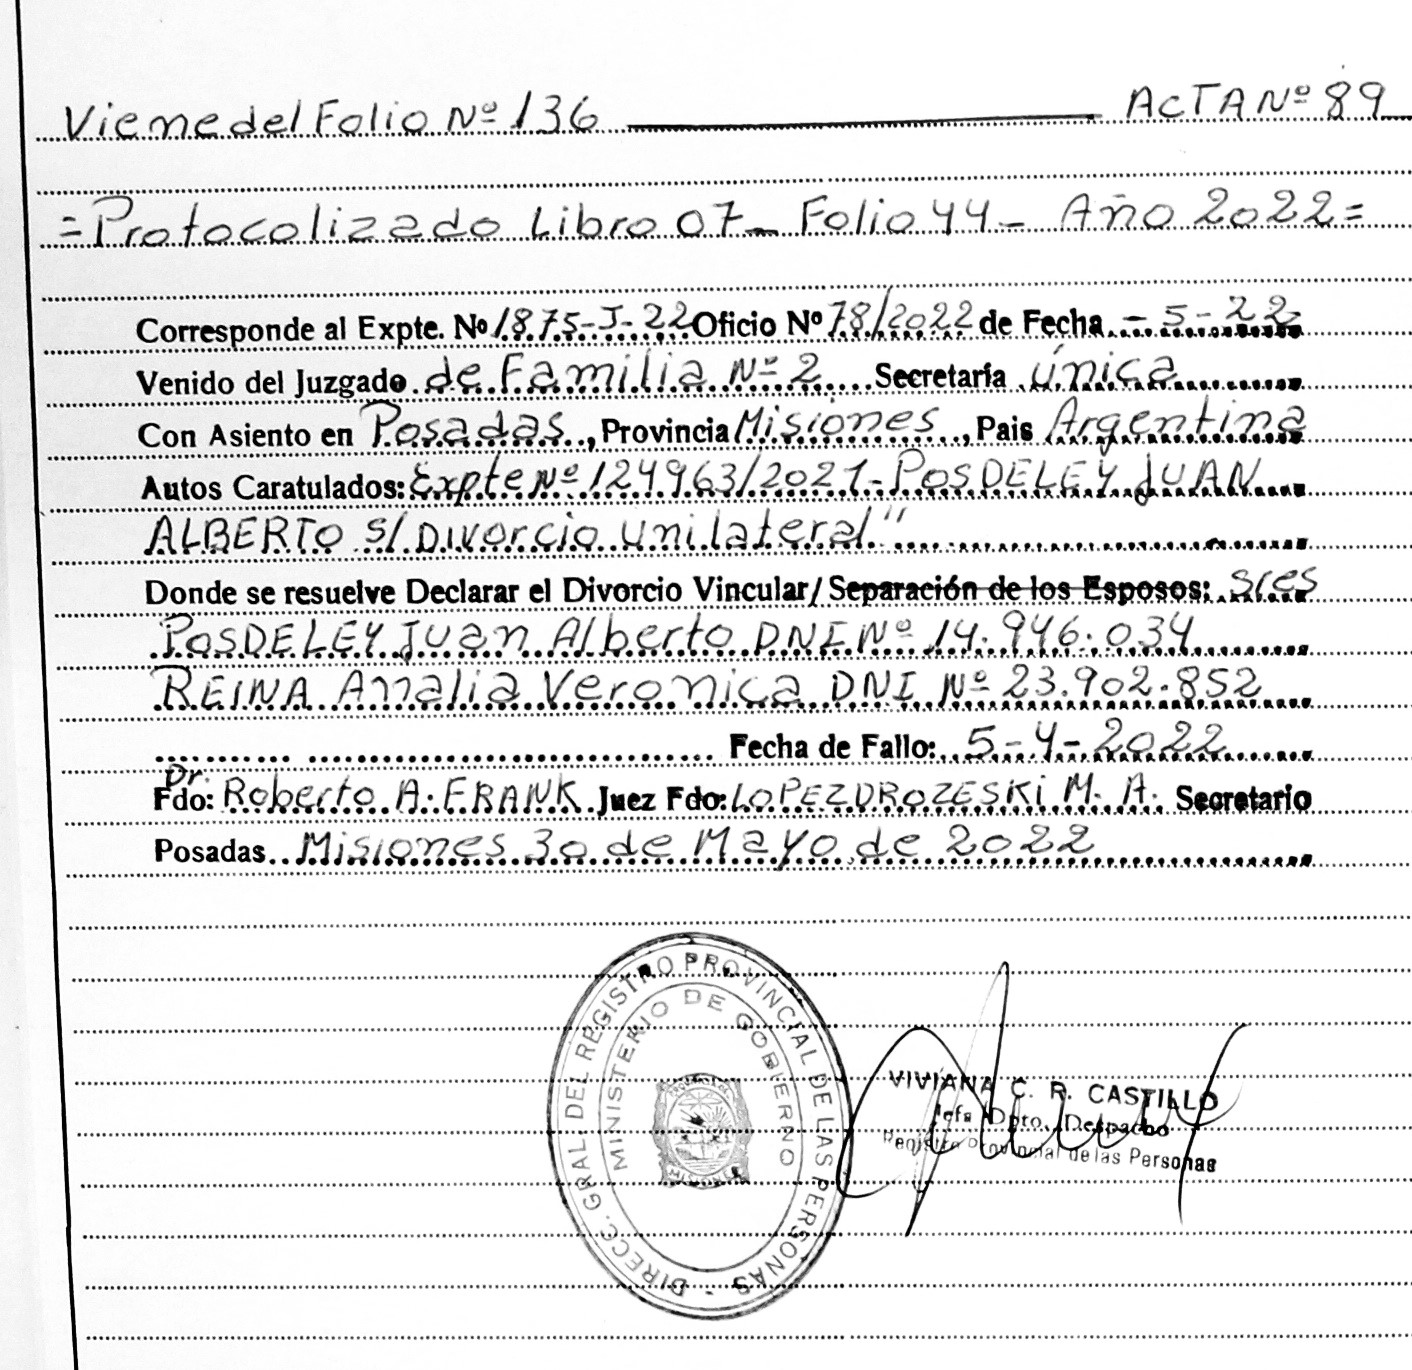 Viene del Folio Nº 136 ACTA Nº 89
=Protocolizado Libro 07- Folio 44- Año 2022=
Corresponde al Expte. Nº 1875-J-22 Oficio Nº 78/2022 de Fecha -5-22
Venido del Juzgado de Familia Nº 2 Secretaría única
Con Asiento en Posadas, Provincia Misiones, Pais Argentina
Autos Caratulados: Expte Nº 124963/2021-POSDELEY JUAN
ALBERTO s/Divorcio unilateral"
Donde se resuelve Declarar el Divorcio Vincular/ Separación de los Esposos: Sres
POSDELEY Juan Alberto DNI Nº 14.946.034
REINA Analia Veronica DNI Nº 23.902.852
Fecha de Fallo: 5-4-2022
Fdo: Dr. Roberto A. FRANK Juez Fdo: LOPEZ DROZESKI M. A. Secretario
Posadas Misiones 30 de Mayo de 2022
DIRECC. GRAL. DEL REGISTRO PROVINCIAL DE LAS PERSONAS
MINISTERIO DE GOBIERNO
MISIONES
VIVIANA C. R. CASTILLO
Jefa Dpto. Despacho
Registro Provincial de las Personas